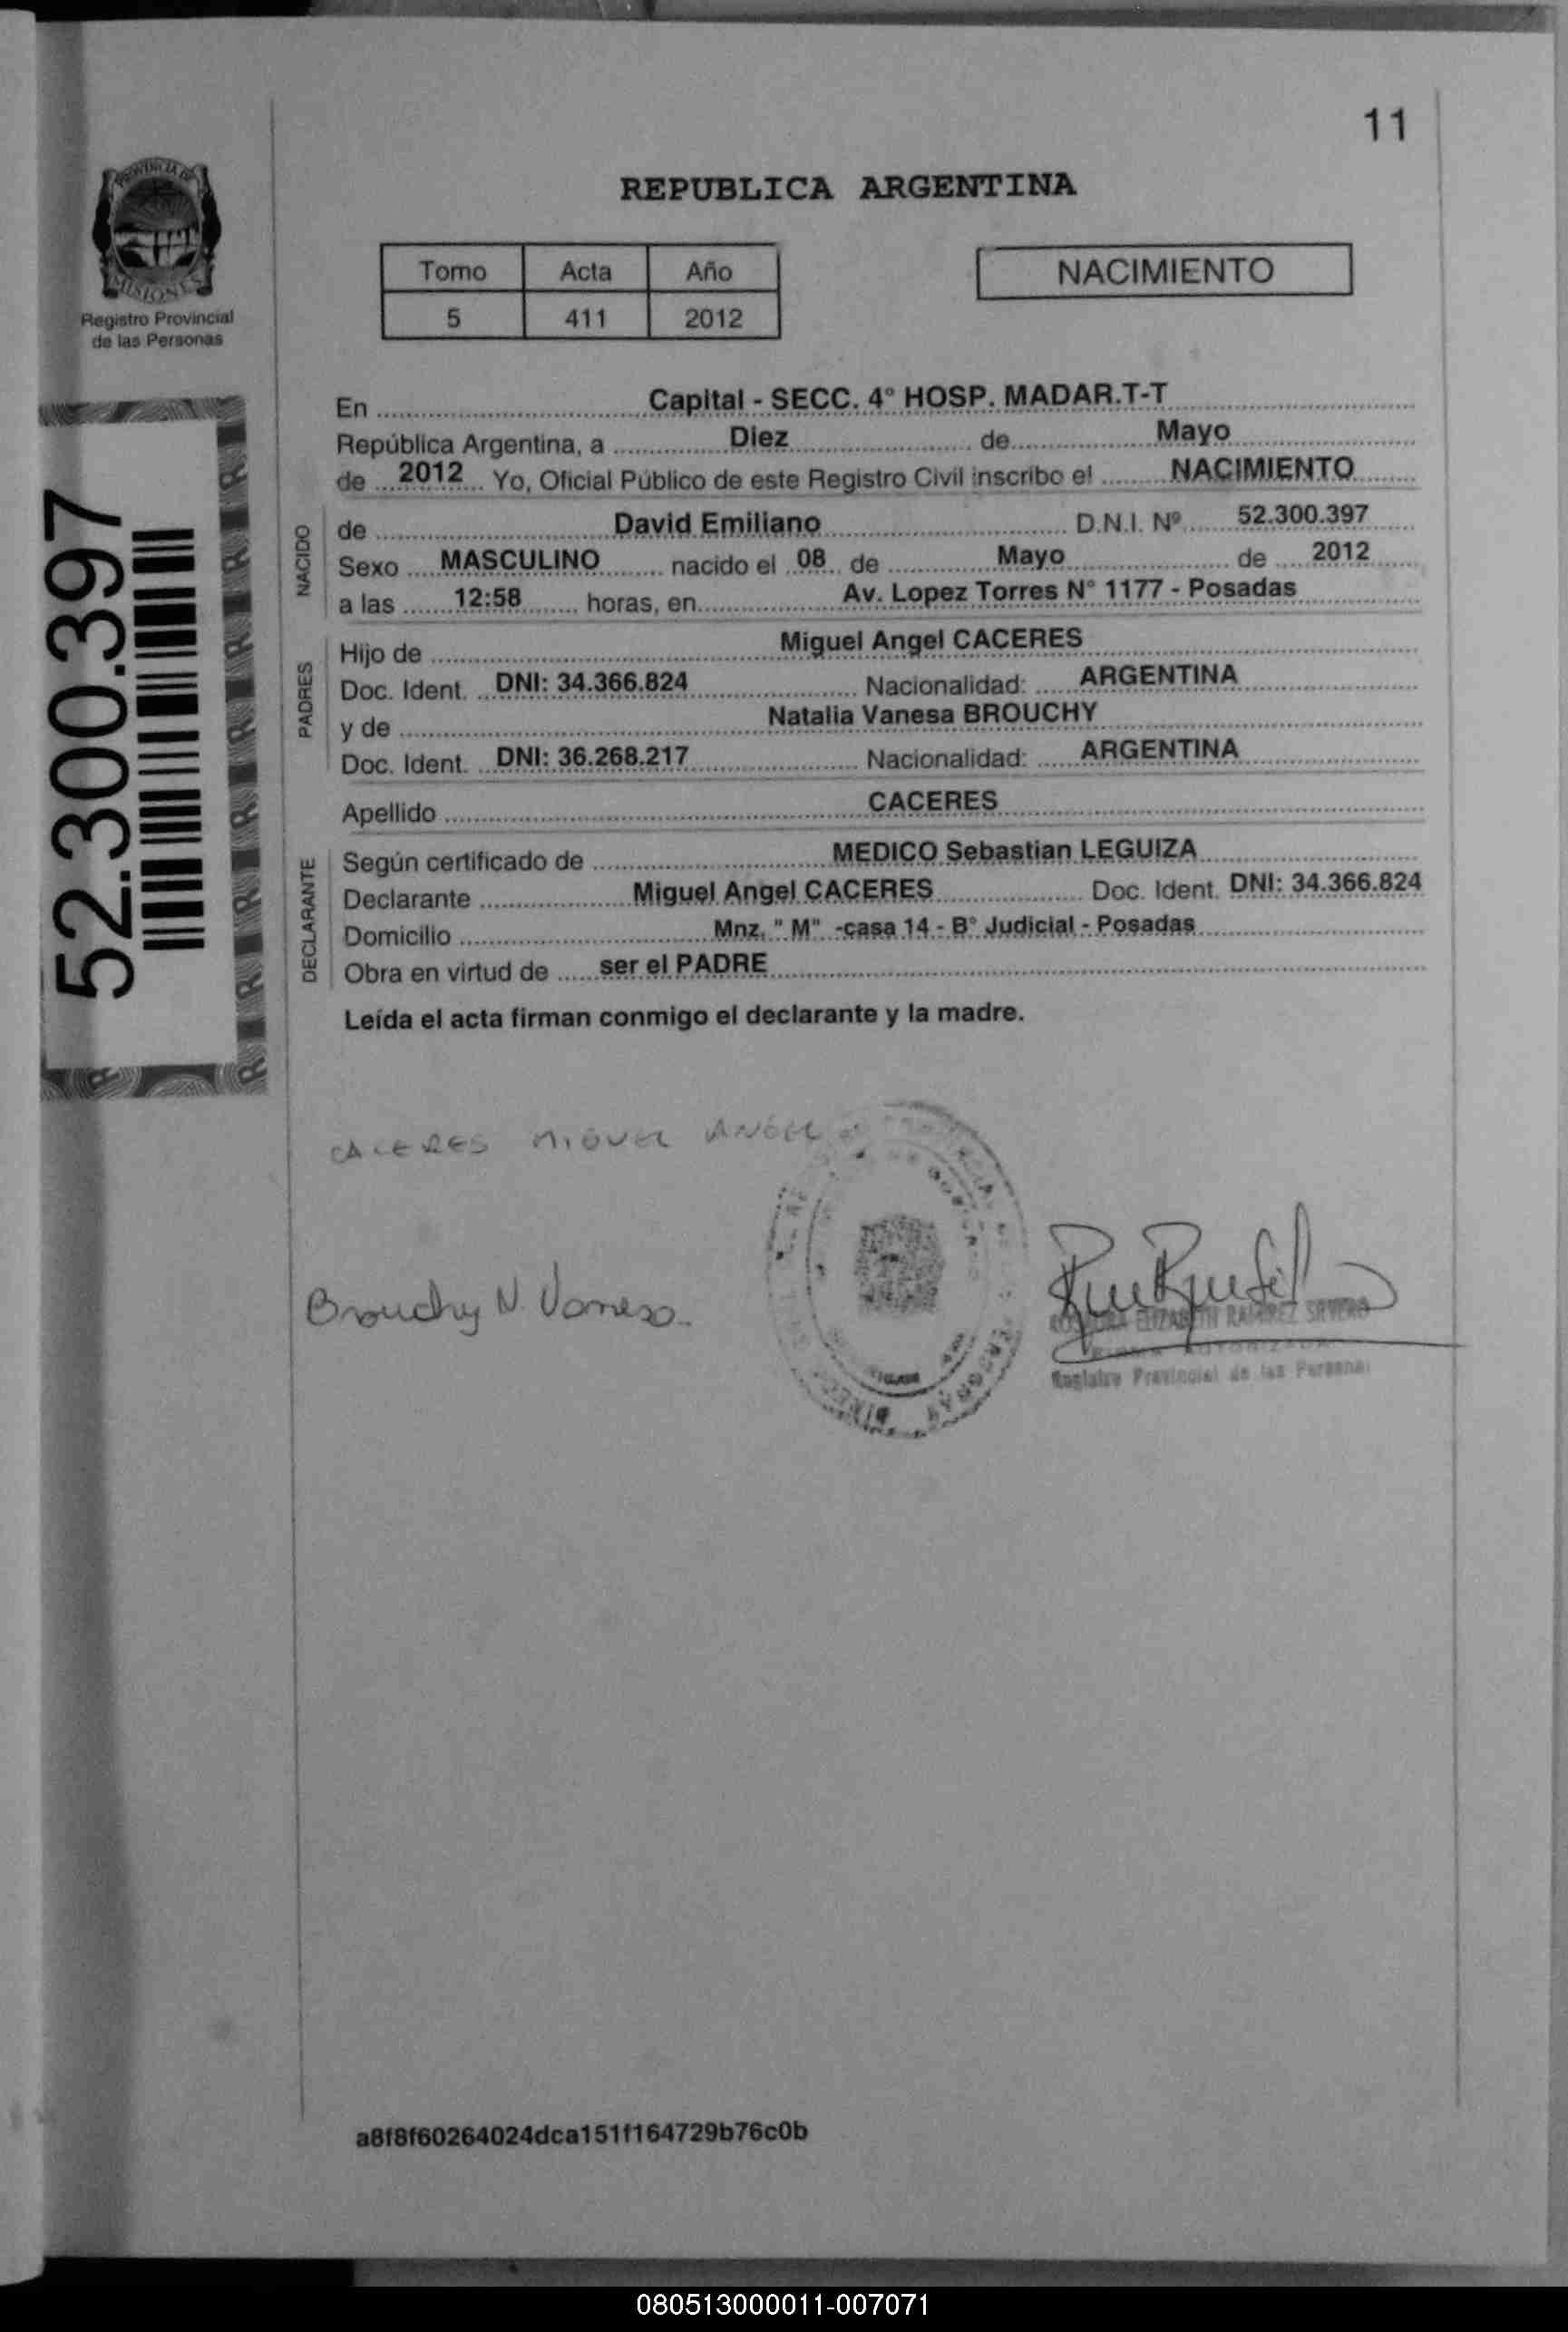 11
PROVINCIA DE
MISIONES
Registro Provincial
de las Personas
REPUBLICA ARGENTINA
Tomo Acta Año
5 411 2012
NACIMIENTO
52.300.397
En Capital - SECC. 4° HOSP. MADAR.T-T
República Argentina, a Diez de Mayo
de 2012 Yo, Oficial Público de este Registro Civil inscribo el NACIMIENTO
NACIDO
de David Emiliano D.N.I. Nº 52.300.397
Sexo MASCULINO nacido el 08 de Mayo de 2012
a las 12:58 horas, en Av. Lopez Torres N° 1177 - Posadas
PADRES
Hijo de Miguel Angel CACERES
Doc. Ident. DNI: 34.366.824 Nacionalidad: ARGENTINA
y de Natalia Vanesa BROUCHY
Doc. Ident. DNI: 36.268.217 Nacionalidad: ARGENTINA
Apellido CACERES
DECLARANTE
Según certificado de MEDICO Sebastian LEGUIZA
Declarante Miguel Angel CACERES Doc. Ident. DNI: 34.366.824
Domicilio Mnz. " M" -casa 14 - B° Judicial - Posadas
Obra en virtud de ser el PADRE
Leída el acta firman conmigo el declarante y la madre.
CACERES MIGUEL ANGEL
Brouchy N. Vanesa.
ELIZABETH RAMIREZ
Registro Provincial de las Personas
a8f8f60264024dca151f164729b76c0b
080513000011-007071